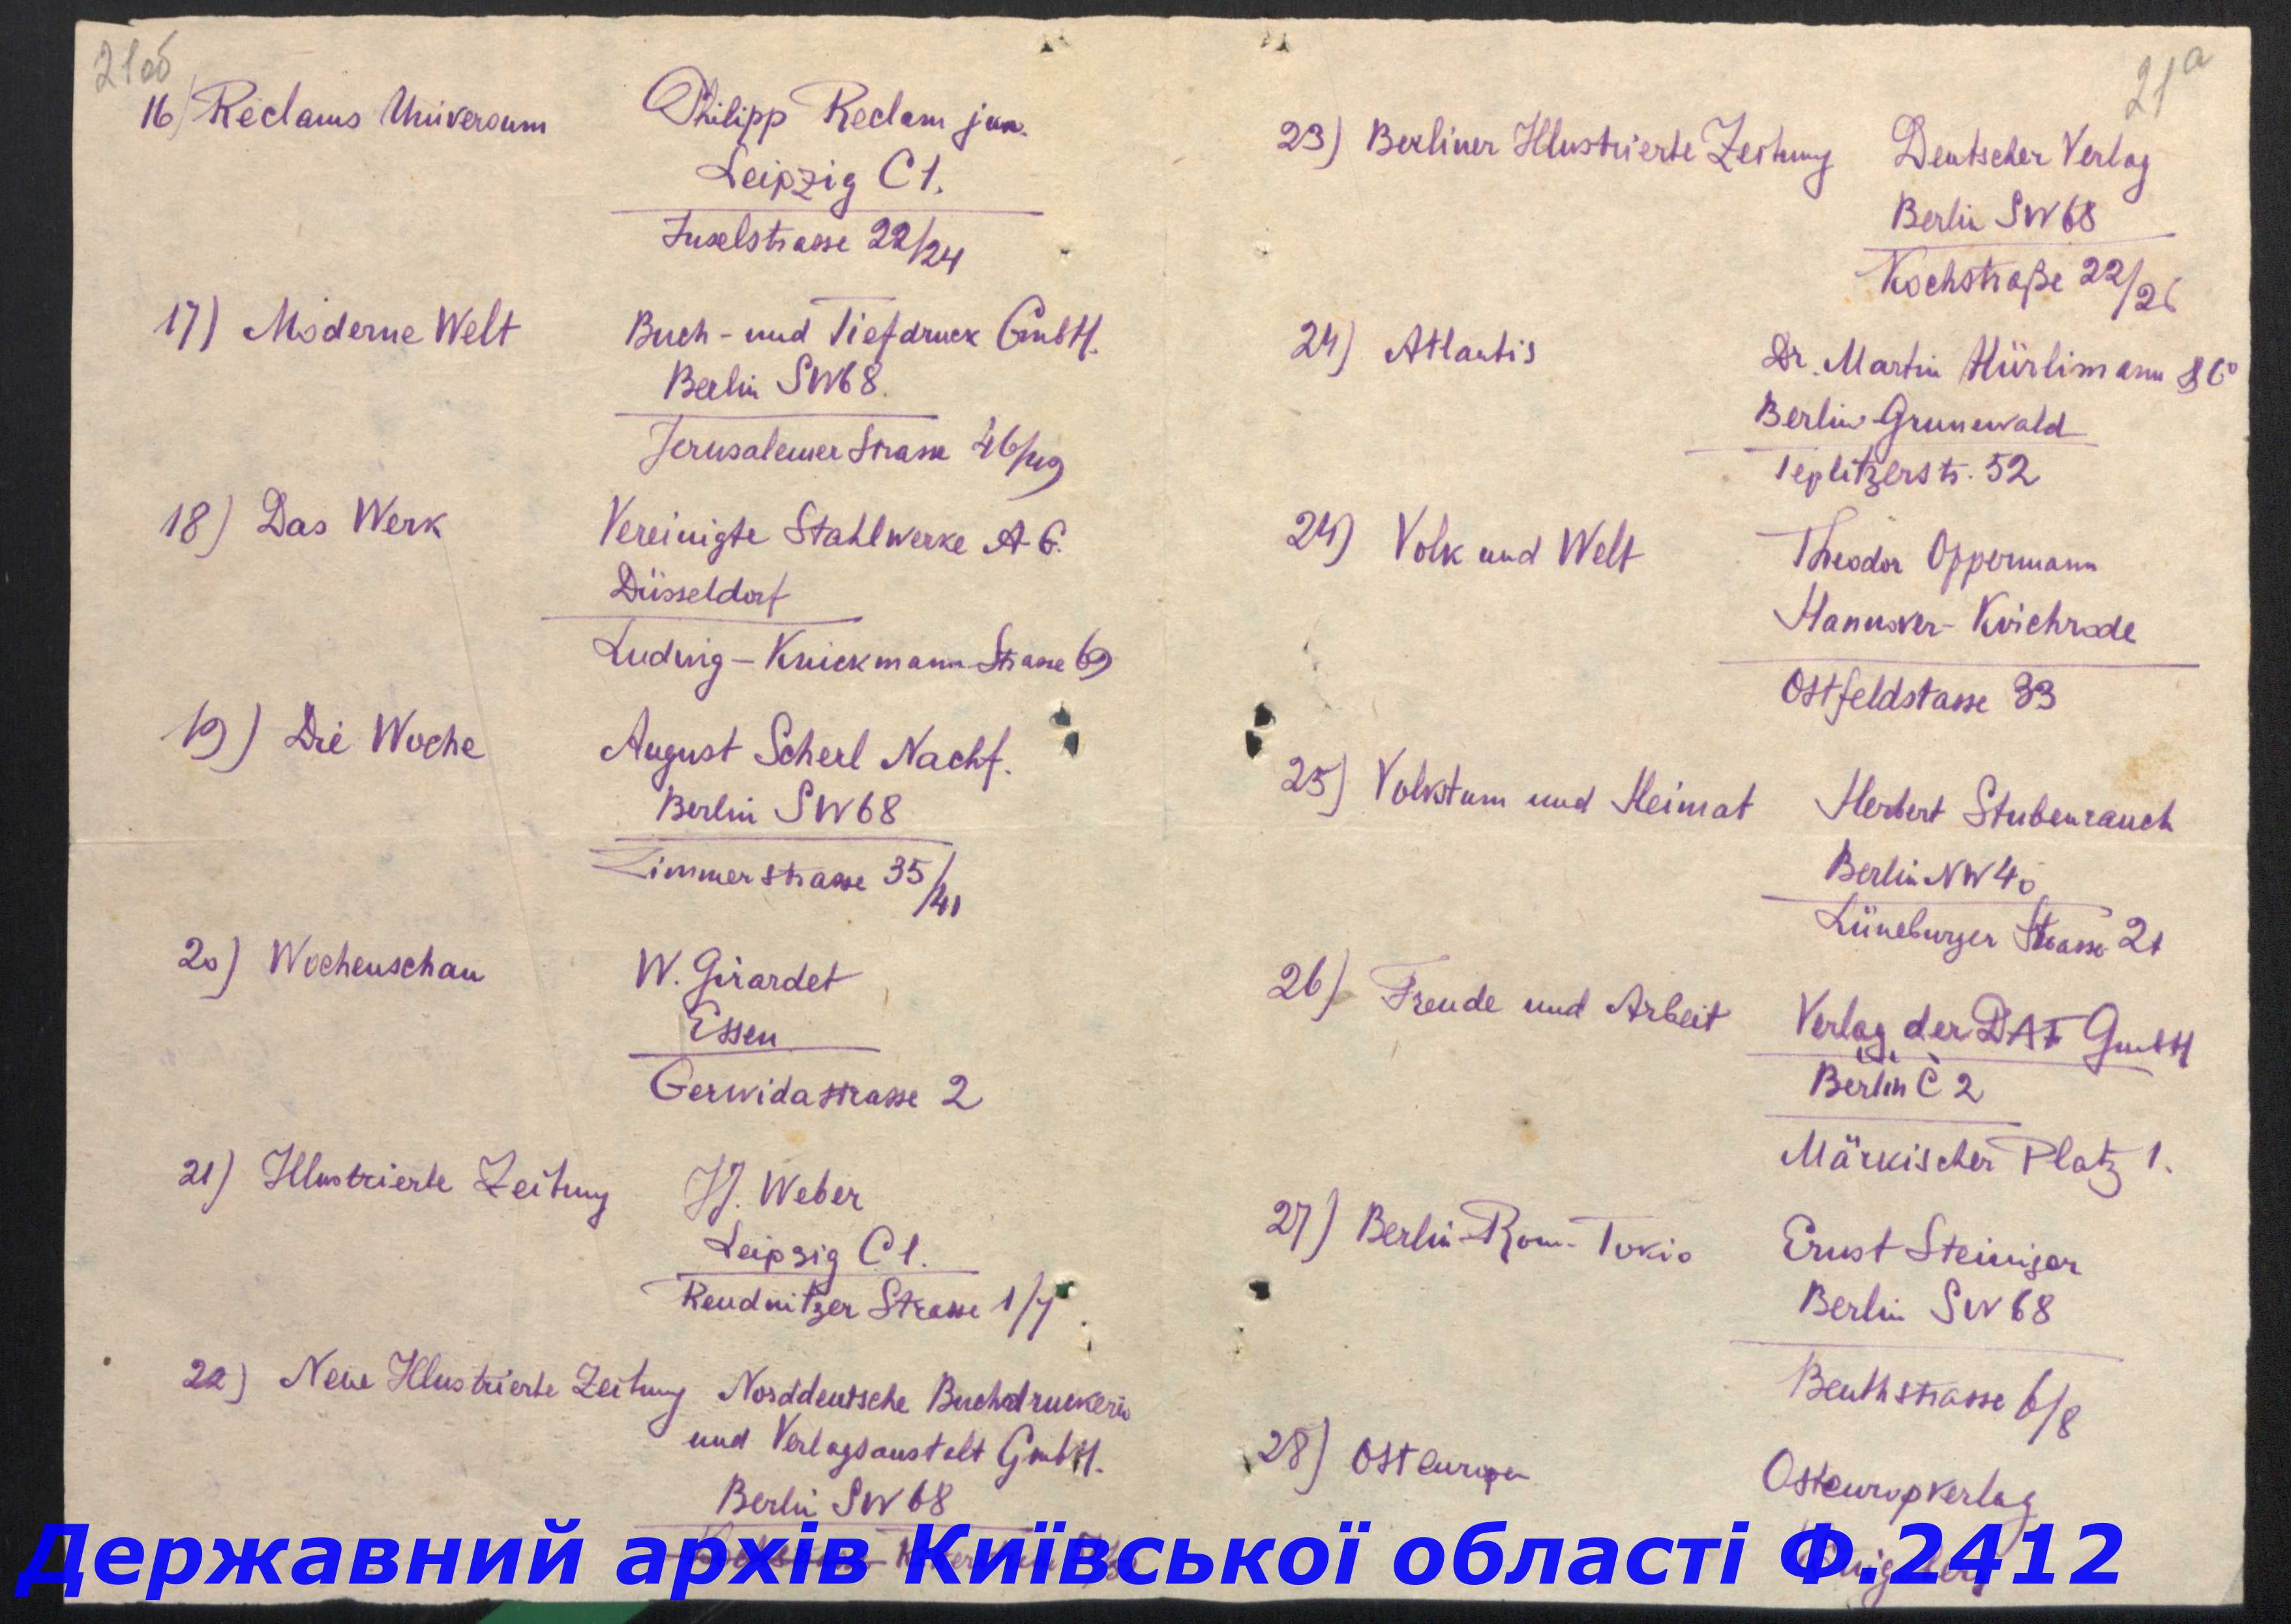 21об
16) Reclams Universum
Philipp Reclam jun.
Leipzig C1.
Inselstrasse 22/24
17) Moderne Welt
Buch- und Tiefdruck GmbH.
Berlin SW68.
Jerusalemer Strasse 46/49
18) Das Werk
Vereinigte Stahlwerke A.G.
Düsseldorf
Ludwig-Knickmann-Strasse 69
19) Die Woche
August Scherl Nachf.
Berlin SW68
Zimmerstrasse 35/41
20) Wochenschau
W. Girardet
Essen
Gerwidastrasse 2
21) Illustrierte Zeitung
JJ. Weber
Leipzig C1.
Reudnitzer Strasse 1/7
22) Neue Illustrierte Zeitung
Norddeutsche Buchdruckerei
und Verlagsanstalt GmbH.
Berlin SW68
21а
23) Berliner Illustrierte Zeitung
Deutscher Verlag
Berlin SW68
Kochstraße 22/26
24) Atlantis
Dr. Martin Hürlimann & Co
Berlin-Grunewald
Teplitzerstr. 52
24) Volk und Welt
Theodor Oppermann
Hannover-Kirchrode
Ostfeldstasse 33
25) Volkstum und Heimat
Herbert Stubenrauch
Berlin NW40
Lüneburger Strasse 21
26) Freude und Arbeit
Verlag der DAF GmbH
Berlin C2
Märkischer Platz 1.
27) Berlin-Rom-Tokio
Ernst Steiniger
Berlin SW68
Beuthstrasse 6/8
28) Osteuropa
Osteuropverlag
Державний архів Київської області Ф.2412